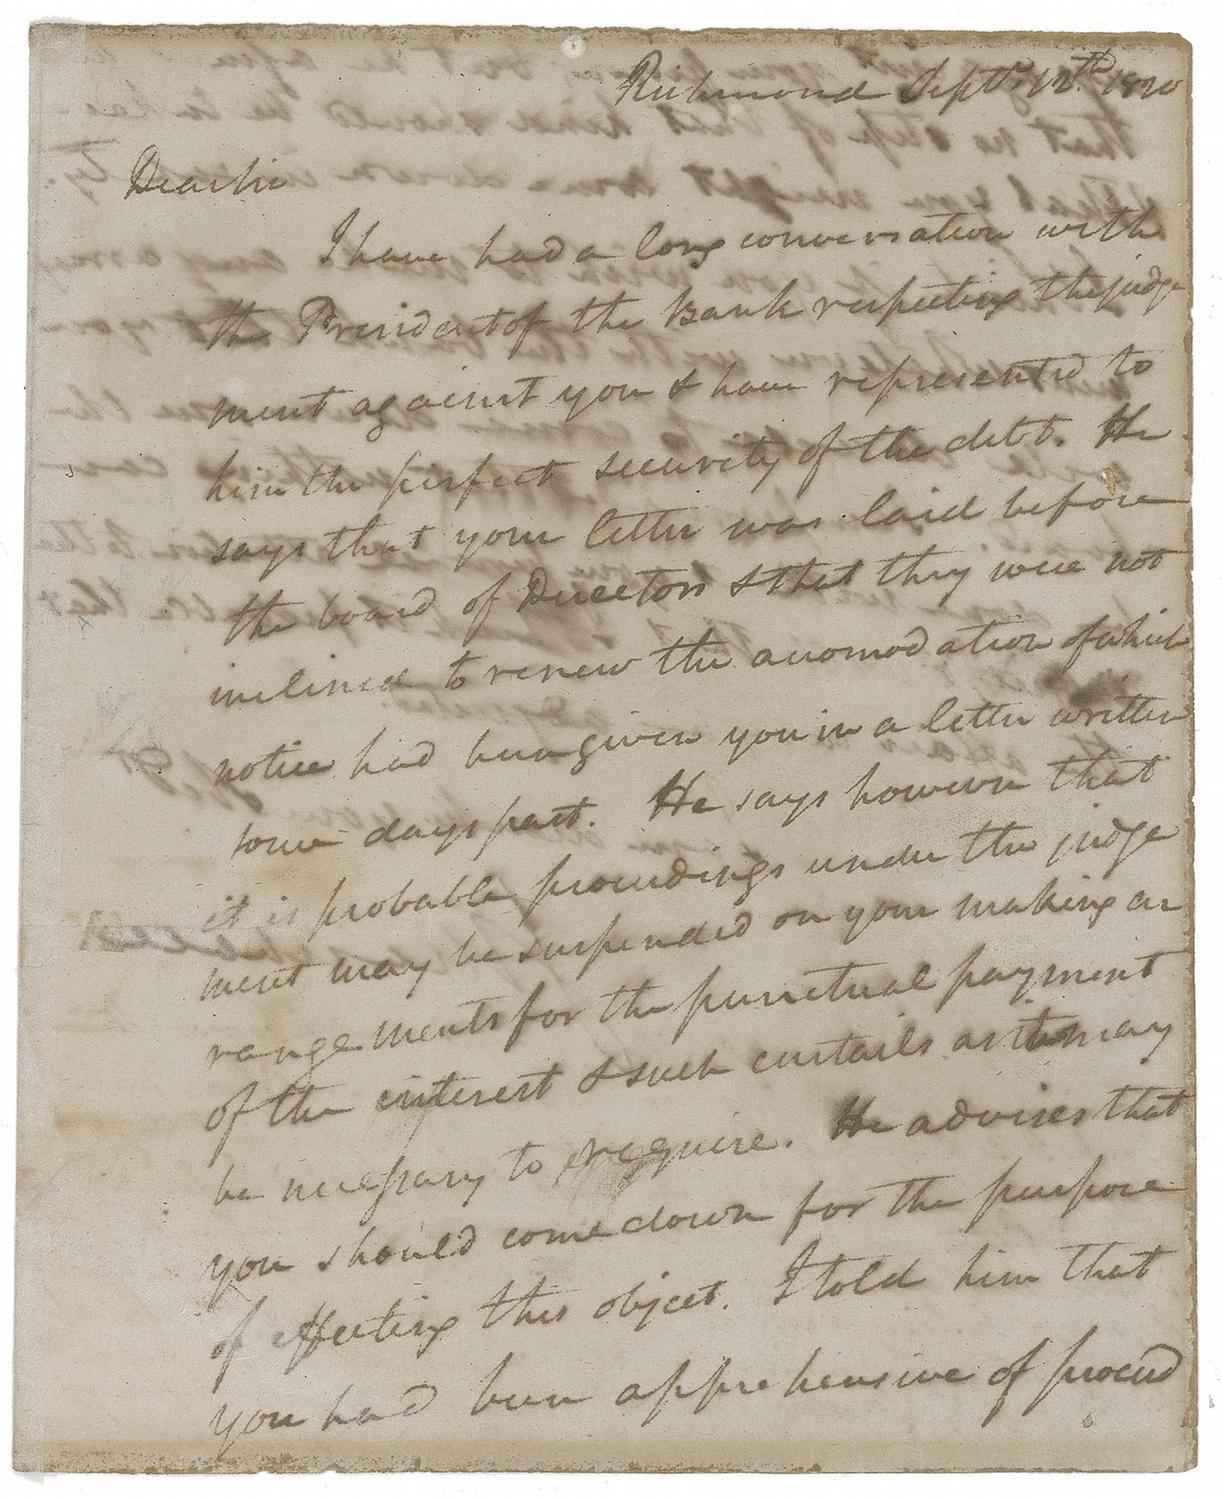 Richmond Septr. 12th. 1820
Dear Sir
I have had a long conversation with
the President of the Bank respecting the judge
ment against you & have represented to
him the perfect security of the debt. He
says that your letter was laid before
the board of Directors & that they were not
inclined to renew the accomodation of which
notice had been given you in a letter written
some days past. He says however that
it is probable proceedings under the judge
ment may be suspended on your making ar
rangements for the punctual payment
of the interest & such curtails as it may
be necessary to require. He advises that
you should come down for the purpose
of effecting this object. I told him that
you had been apprehensive of proceed